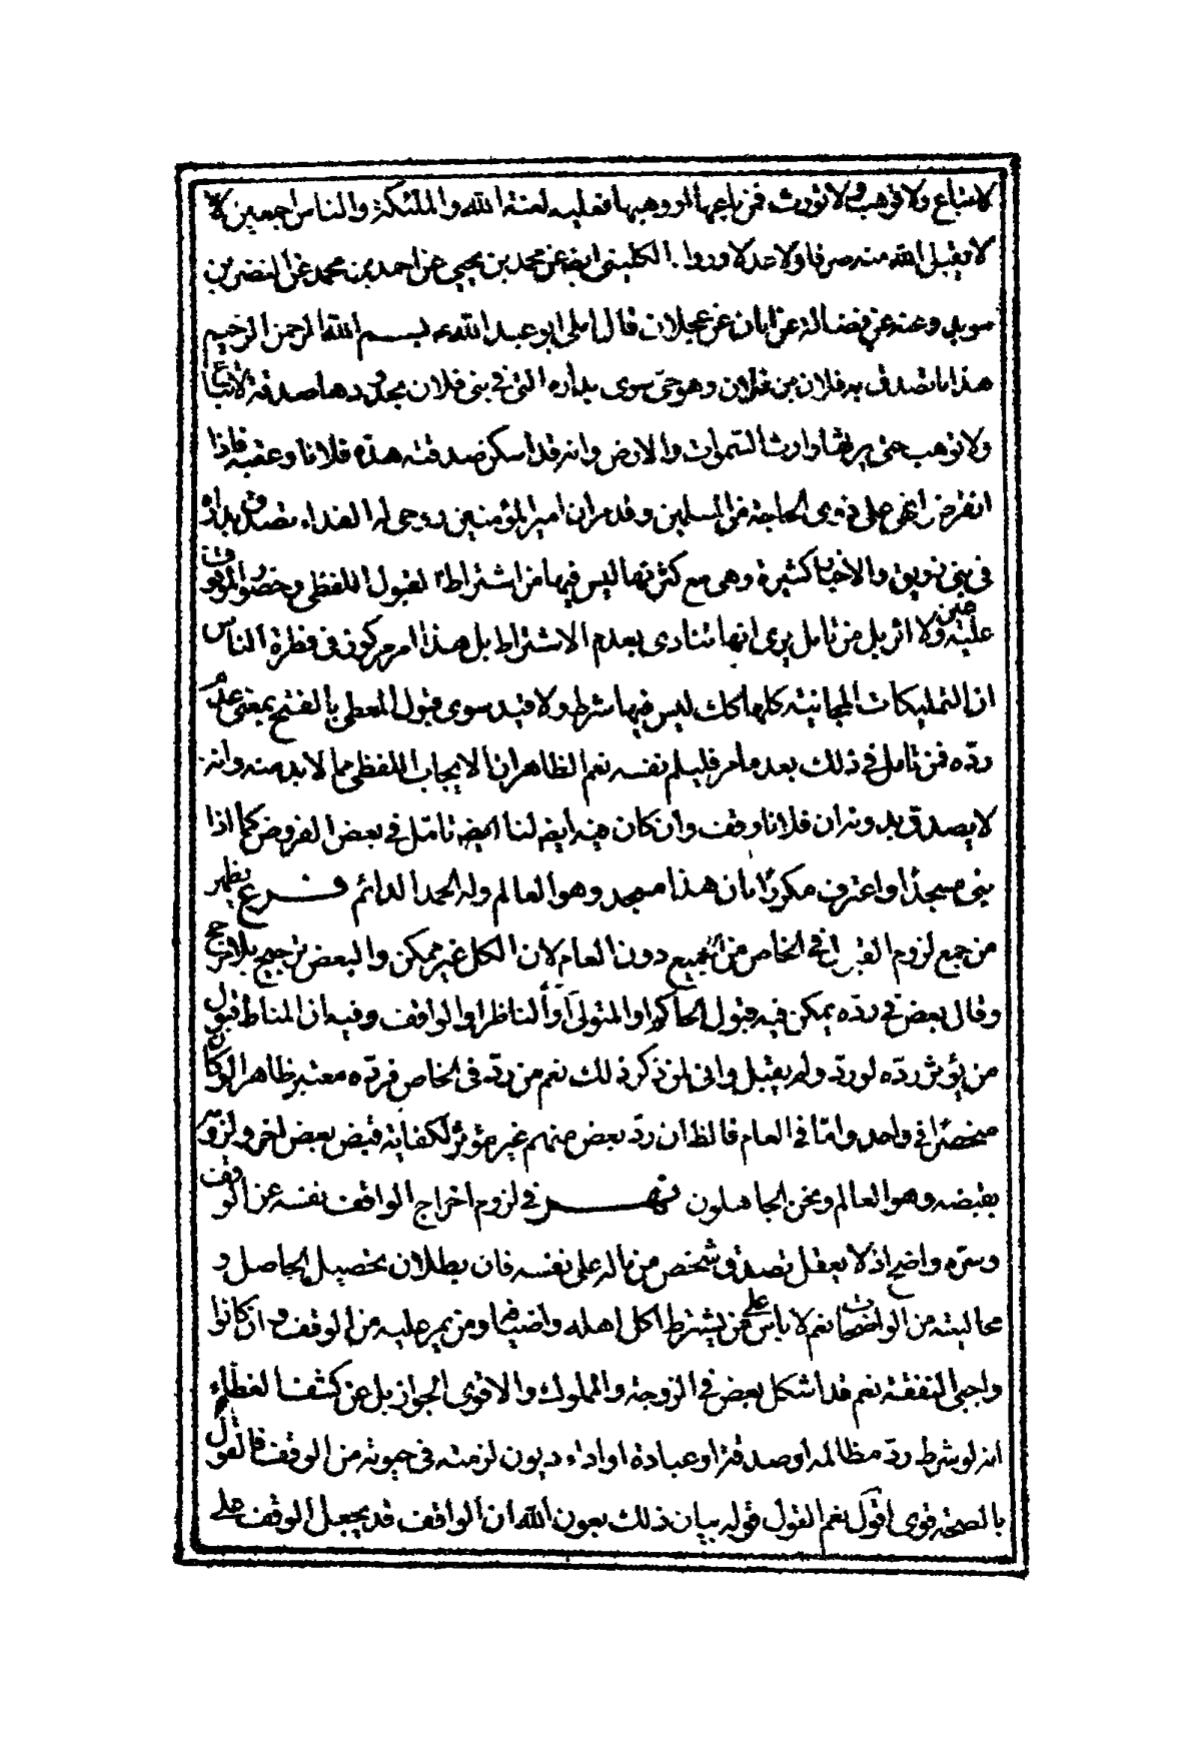 لا تباع ولا توهب ولا تورث فمن باعها او وهبها فعليه لعنة الله والملئكة والناس اجمعين لا
لا يقبل الله منه صرفا ولا عدلا وروا الكليني ايضا عن محمد بن يحيى عن احمد بن محمد عن النضر بن
سويد وعنه عن فضالة عن ابان عن عجلان قال املى ابو عبد الله ع بسم الله الرحمن الرحيم
هذا ما تصدق به فلان بن فلان وهو حي سوى بداره التي في بني فلان بحدودها صدقة لا تباع
ولا توهب حتى يرثها وارث السموات والارض وانه قد اسكن صدقته هذه فلانا وعقبه فاذا
انقرضوا فهي على ذوي الحاجة من المسلمين وقد مر ان امير المؤمنين روحي له الفداء تصدق بداره
في بني زريق والاخبار كثيرة وهي مع كثرتها ليس فيها من اشتراط القبول اللفظي وحضور الموقوف
عليه عين ولا اثر بل من تامل يرى انها تنادي بعدم الاشتراط بل هذا امر مركوز في فطرة الناس
ان التمليكات المجانية كلها كك ليس فيها شرط ولا قيد سوى قبول المعطى بالفتح بمعنى عدم
رده فمن تامل في ذلك بعد ما مر فليلم نفسه نعم الظاهر ان الايجاب اللفظي مما لا بد منه وانه
لا يصدق بدونه ان فلانا وقف وان كان فيه ايضا لنا ايضا تامل في بعض الفروض كما اذا
بنى مسجدا واعترف مكررا بان هذا مسجد وهو العالم وله الحمد الدائم فرع يظهر
من جمع لزوم القبول في الخاص من الجميع دون العام لان الكل غير ممكن والبعض ترجيح بلا مرجح
وقال بعض في رده يمكن فيه قبول الحاكم او المتولي او الناظر او الواقف وفيه ان المناط قبول
من يؤثر رده لو رد ولم يقبل وانى لمن ذكر ذلك نعم من رده في الخاص فرده معتبر ظاهرا لو كان
منحصرا في واحد واما في العام فالظ ان رد بعض منهم غير مؤثر لكفاية قبض بعض اخر ولزومه
بقبضه وهو العالم ونحن الجاهلون نهر في لزوم اخراج الواقف نفسه عن الوقف
وسره واضح اذ لا يعقل تصدق شخص من ماله على نفسه فان بطلان تحصيل الحاصل و
محاليته من الواضحات نعم لا باس على من يشترط اكل اهله واضيافه ومن يمر عليه من الوقف وان كانوا
واجبي النفقة نعم قد اشكل بعض في الزوجة والمملوك والاقوى الجواز بل عن كشف الغطاء
انه لو شرط رد مظالمه او صدقة او عبادة او اداء ديون لزمته في حيوته من الوقف فالقول
بالصحة قوى اقول نعم القول قوله بيان ذلك بعون الله ان الواقف قد يجعل الوقف على